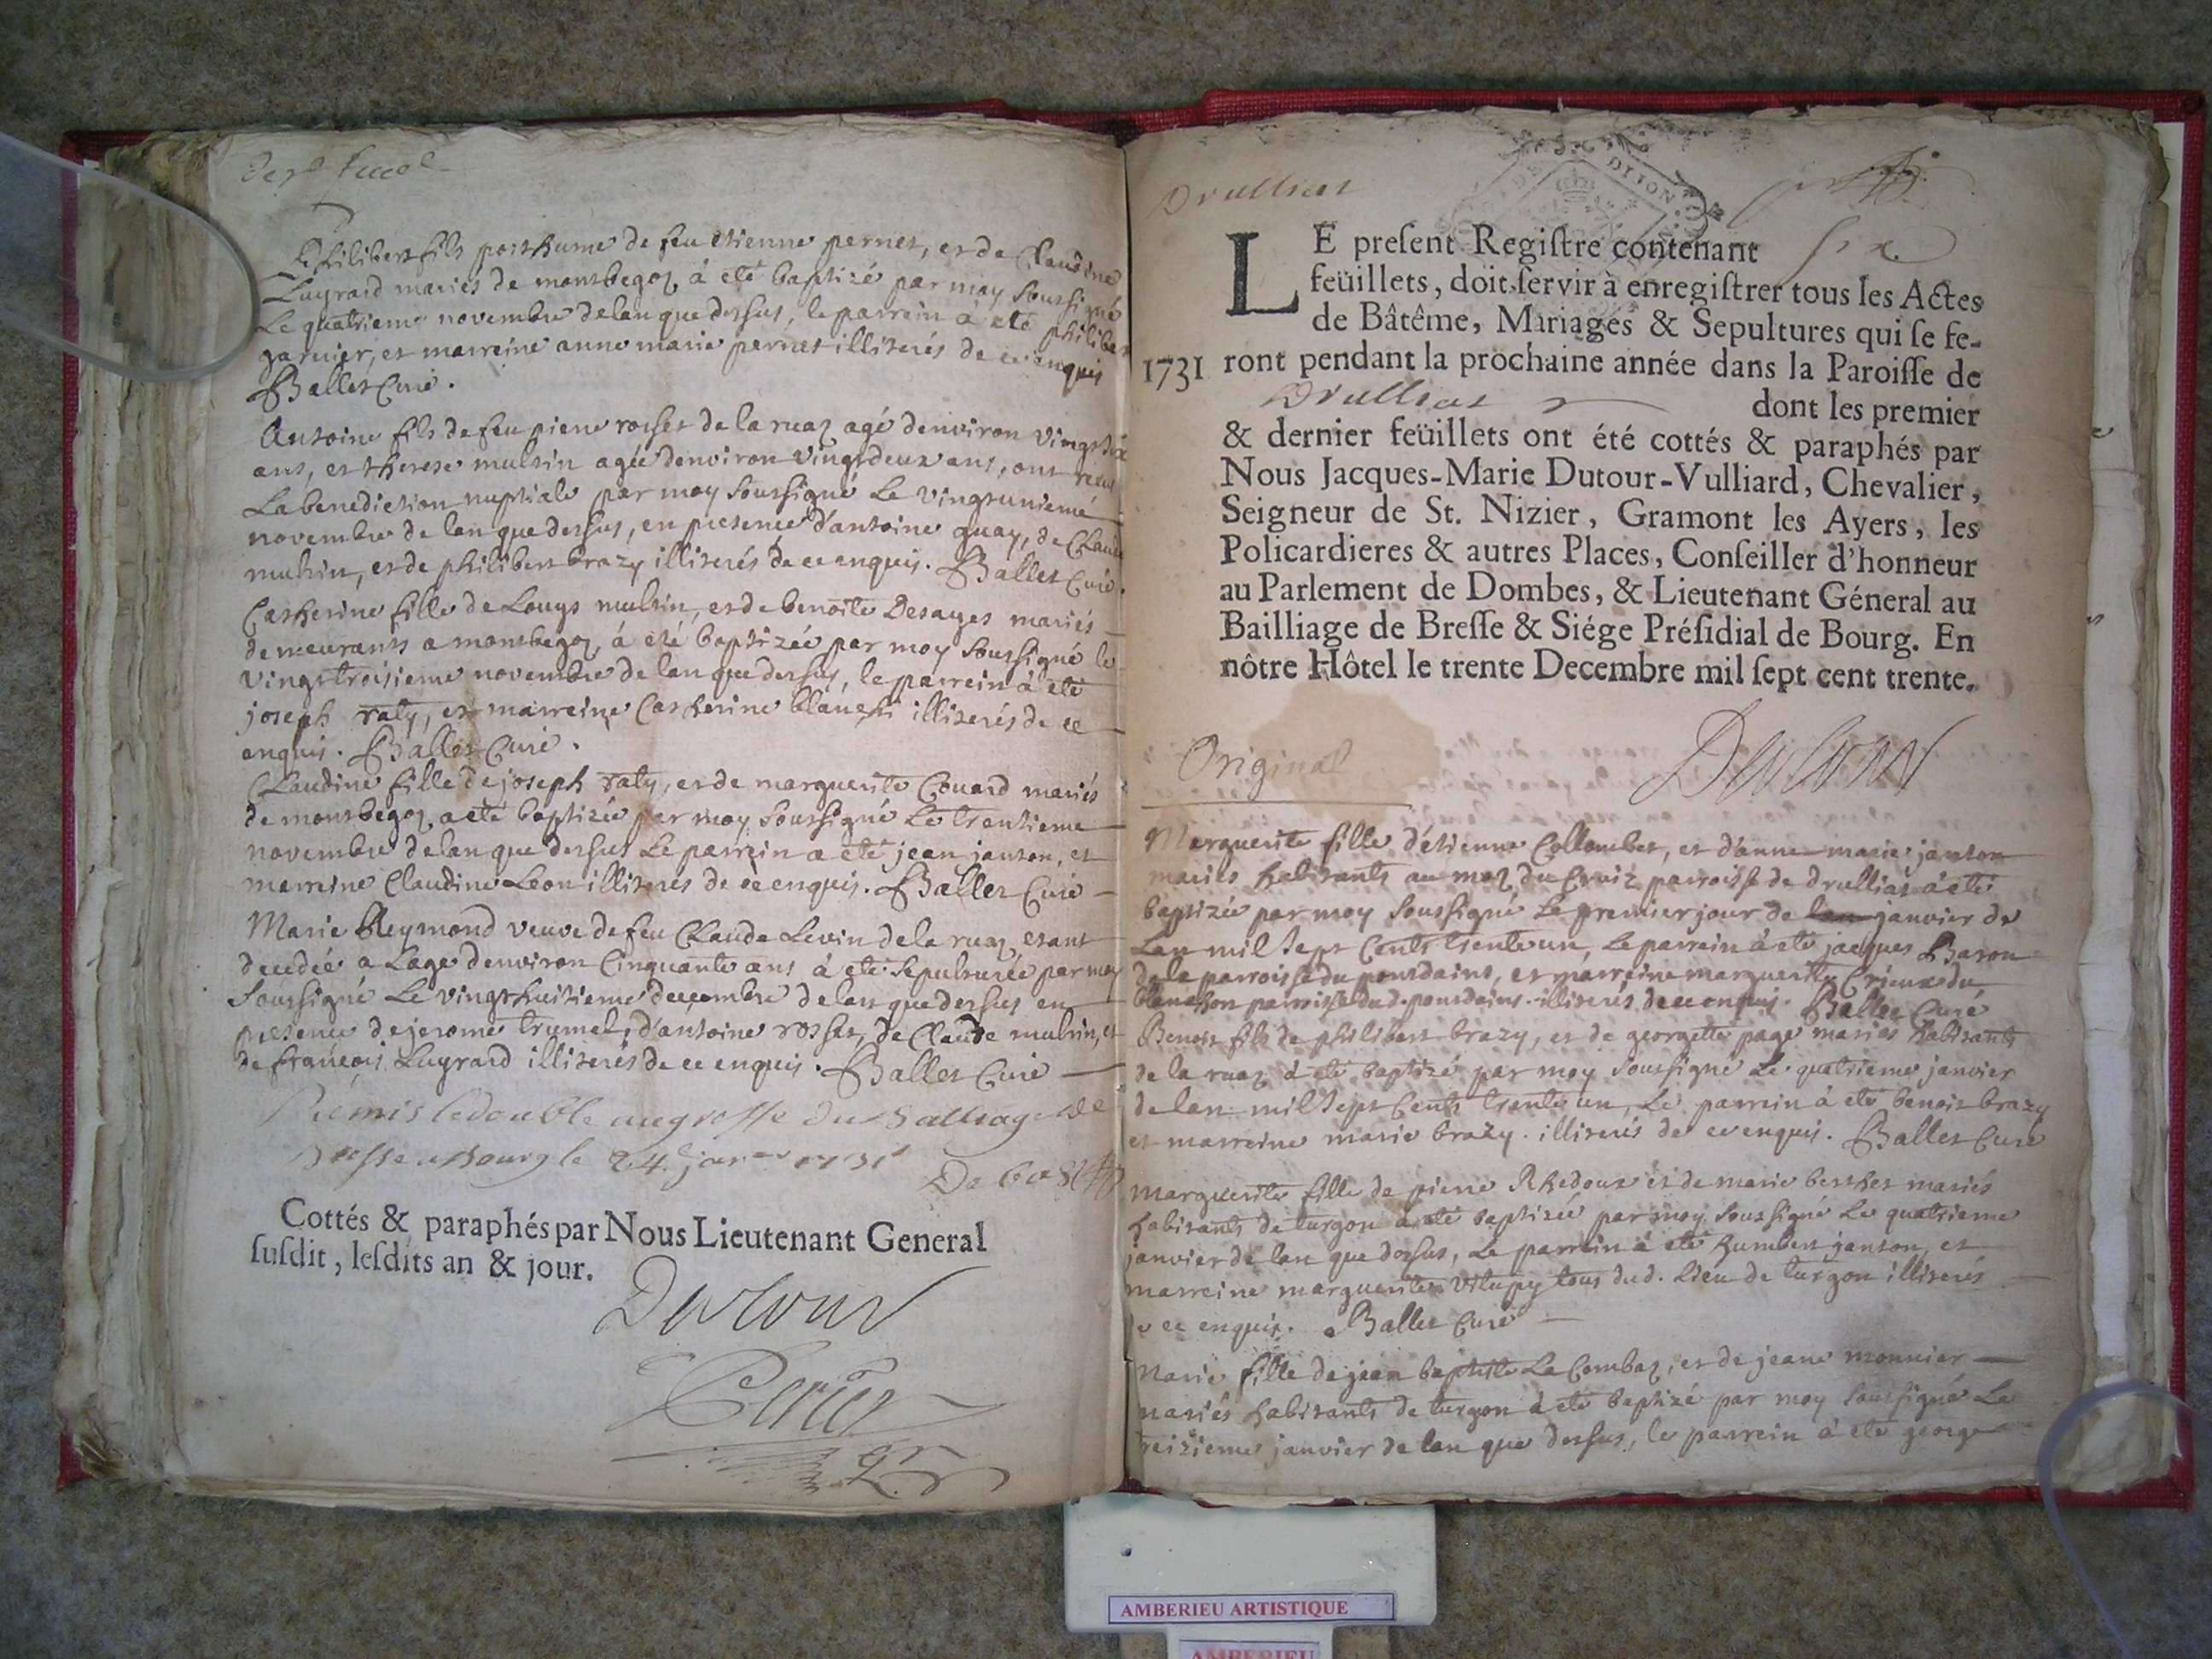 Philibert fils posthume de feu etienne pernet, et de Claudine
Luyrard mariés de montbegoz, à eté baptizé par moy soussigné
Le quatrieme novembre de lan que dessus, le parrein à eté philiber
garnier, et marreine anne marie pernet illiterés de ce enquis
Ballet Curé.
Antoine fils de feu pierre rosset de la ruaz agé denviron vingt
ans, et therese multin agée denviron vingtdeux ans, ont receu
La benediction nuptiale par moy soussigné Le vingtunieme
novembre de lan que dessus, en presence d'antoine guay, de Claude
multin, et de philibert brazy illiterés de ce enquis. Ballet Curé.
Catherine fille de Louys multin, et de benoite Desayes mariés
demeurants a montbegoz, à eté baptizée par moy soussigné le
vingttroisieme novembre de lan que dessus, le parrein à eté
joseph raty, et marreine Catherine blanch illiterés de ce
enquis. Ballet Curé.
Claudine fille de joseph raty, et de marguerite Couard mariés
de montbegoz, a eté baptizée par moy soussigné Le trentieme
novembre de lan que dessus Le parrein a eté jean janton, et
marreine Claudine Leon illiterés de ce enquis. Ballet Curé
Marie Reymond veuve de feu Claude Levin de la ruaz, etant
decedée a Lage denviron Cinquante ans à eté sepulturée par moy
soussigné Le vingthuitieme decembre de lan que dessus en
presence de jerome trumel, d'antoine rosset, de Claude multin, et
de françois Luyrard illiterés de ce enquis. Ballet Curé
Remis le double au greffe du Balliage de
Bresse a Bourg le 24. janer 1731
Cottés & paraphés par Nous Lieutenant General
ſuſdit, leſdits an & jour.
Dutour
Perier
Drullias
DE DIJON
LE preſent Regiſtre contenant six
feüillets, doit ſervir à enregiſtrer tous les Actes
de Bâtême, Mariages & Sepultures qui ſe fe-
1731 ront pendant la prochaine année dans la Paroiſſe de
Drullias dont les premier
& dernier feüillets ont été cottés & paraphés par
Nous Jacques-Marie Dutour-Vulliard, Chevalier,
Seigneur de St. Nizier, Gramont les Ayers, les
Policardieres & autres Places, Conſeiller d'honneur
au Parlement de Dombes, & Lieutenant Géneral au
Bailliage de Breſſe & Siége Préſidial de Bourg. En
nôtre Hôtel le trente Decembre mil ſept cent trente.
Original Dutour
Marguerite fille d'étienne Collombet, et d'anne marie janton
mariés habitants au maz du Cruiz parroisse de drullias à eté
baptizée par moy soussigné Le premier jour de lan janvier de
Lan mil sept Cents trente un, Le parrein à eté jacques Baron
de la parroisse du pontdains, et marreine marguerite Crieux du
blanchon parroisse dud. pontdains illiterés de ce enquis. Ballet Curé
Benoit fils de philibert brazy, et de georgette page mariés habitants
de la ruaz à eté baptizé par moy soussigné Le quatrieme janvier
de lan mil sept Cents trente un, Le parrein à eté benoit brazy
et marreine marie brazy illiterés de ce enquis. Ballet Curé
marguerite fille de pierre Rhedoux et de marie berthet mariés
habitants de turgon à eté baptizée par moy soussigné Le quatrieme
janvier de lan que dessus, Le parrein à eté humbert janton, et
marreine marguerite Vitupy tous dud. Lieu de turgon illiterés
de ce enquis. Ballet Curé
Marie fille de jean baptiste La Combaz, et de jeane monnier
mariés habitants de turgon à eté baptizé par moy soussigné Le
treizieme janvier de lan que dessus, le parrein à eté george
AMBERIEU ARTISTIQUE
AMBERIEU